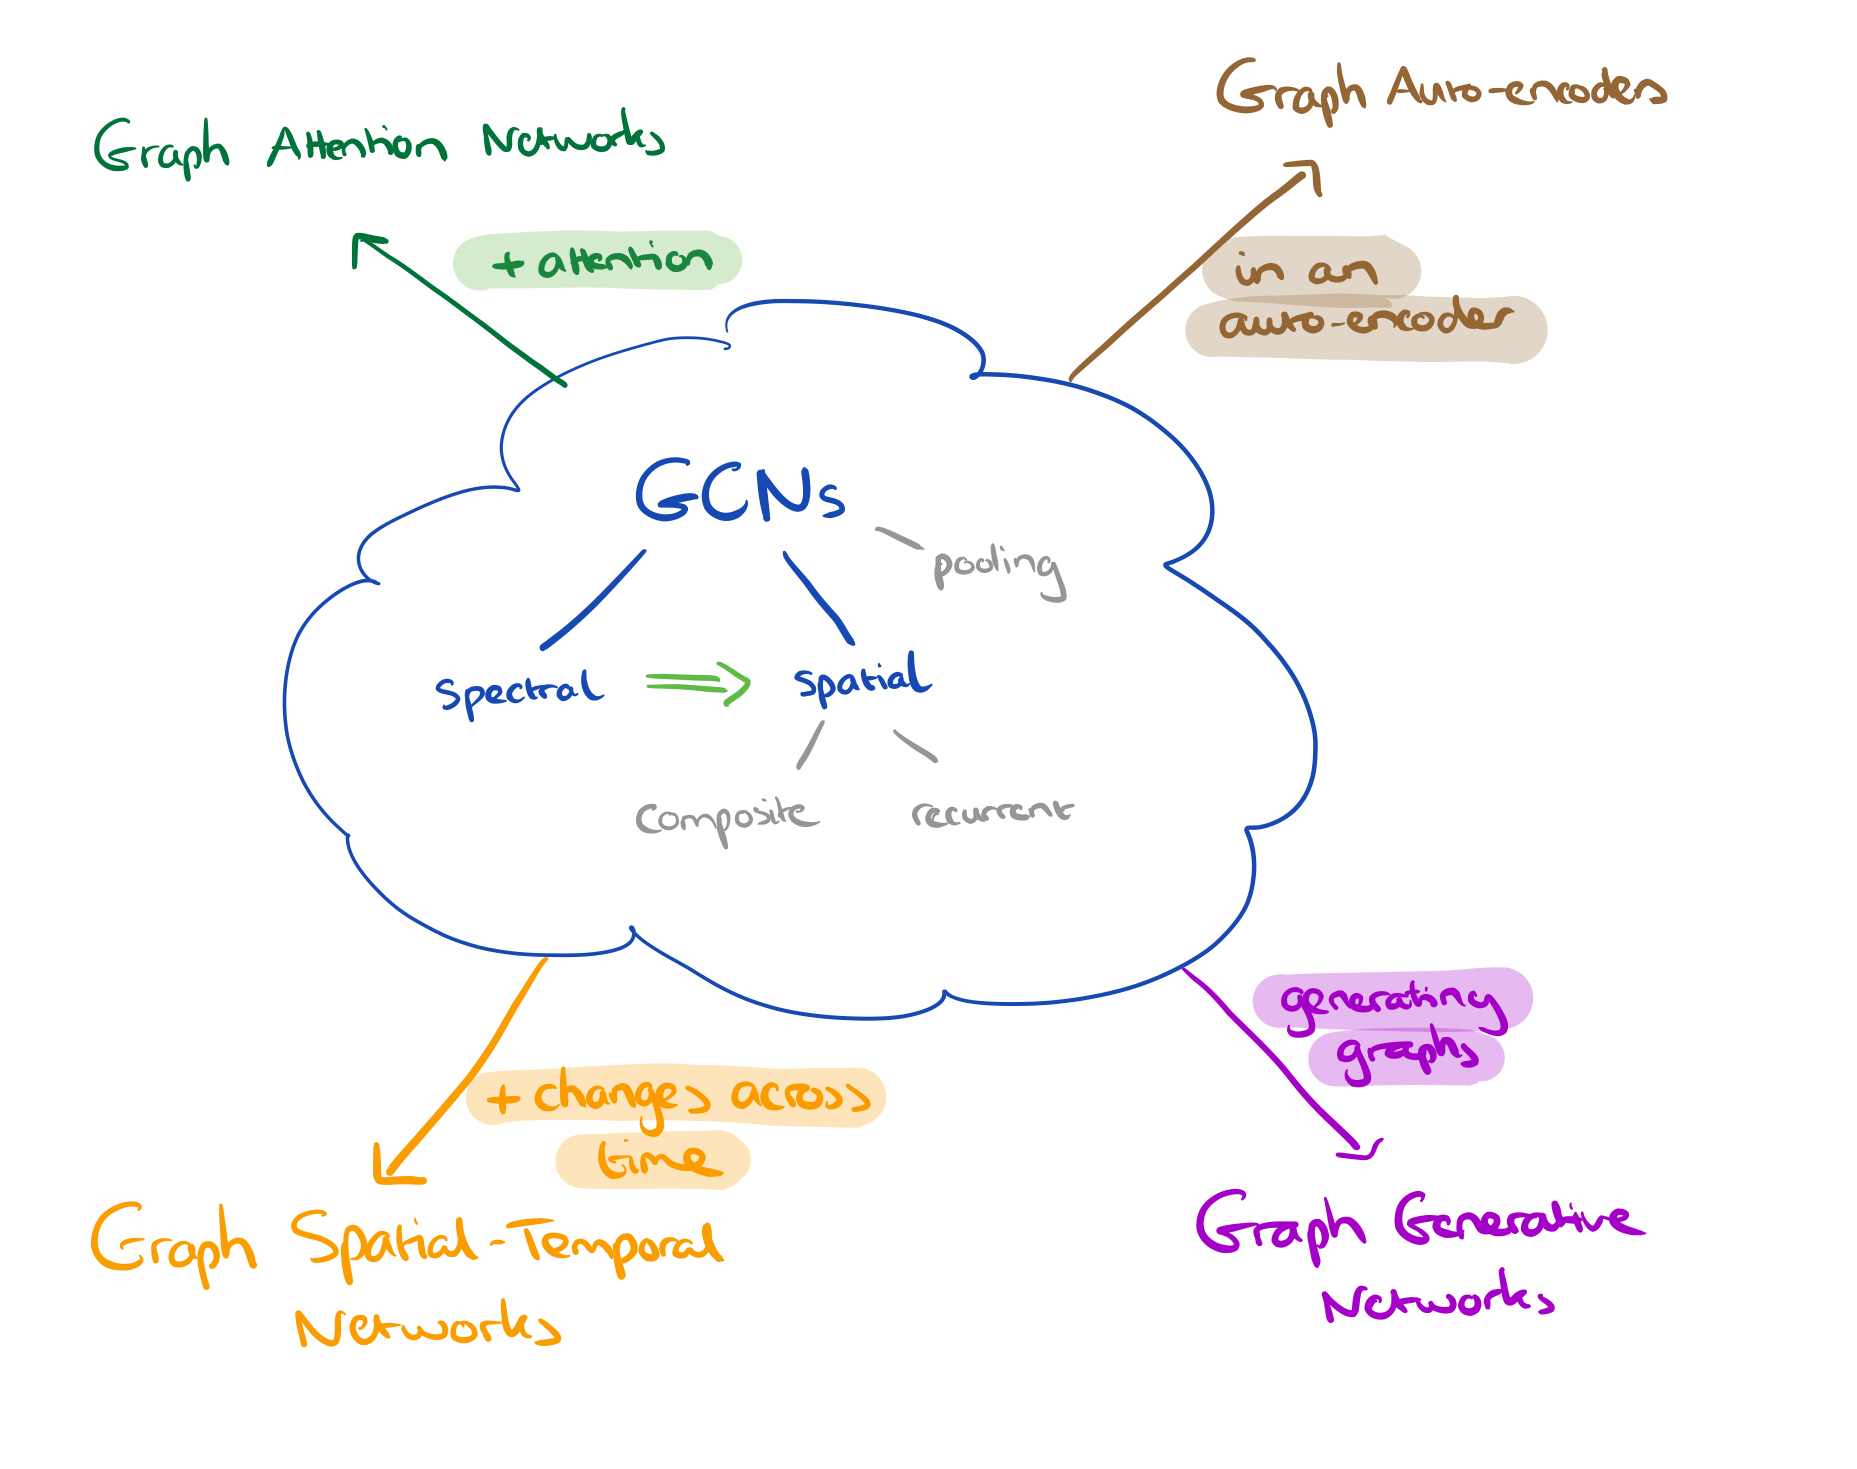 Graph Attention Networks
+ attention
Graph Auto-encoders
in an
auto-encoder
GCNs
pooling
spectral
spatial
composite
recurrent
+ changes across
time
Graph Spatial-Temporal
Networks
generating
graphs
Graph Generative
Networks